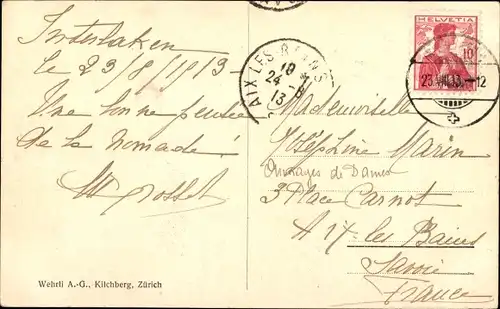 Interlaken
le 23/8/1913-
Une bonne pensée
de la nomade!
Wehrli A.-G., Kilchberg, Zürich
AIX-LES-BAINS
24 - 8
13
HELVETIA
10
23.VIII.13.-12
Mademoiselle
Joséphine Marin
Ouvrages de Dames
3 Place Carnot
Aix-les Bains
Savoie
France